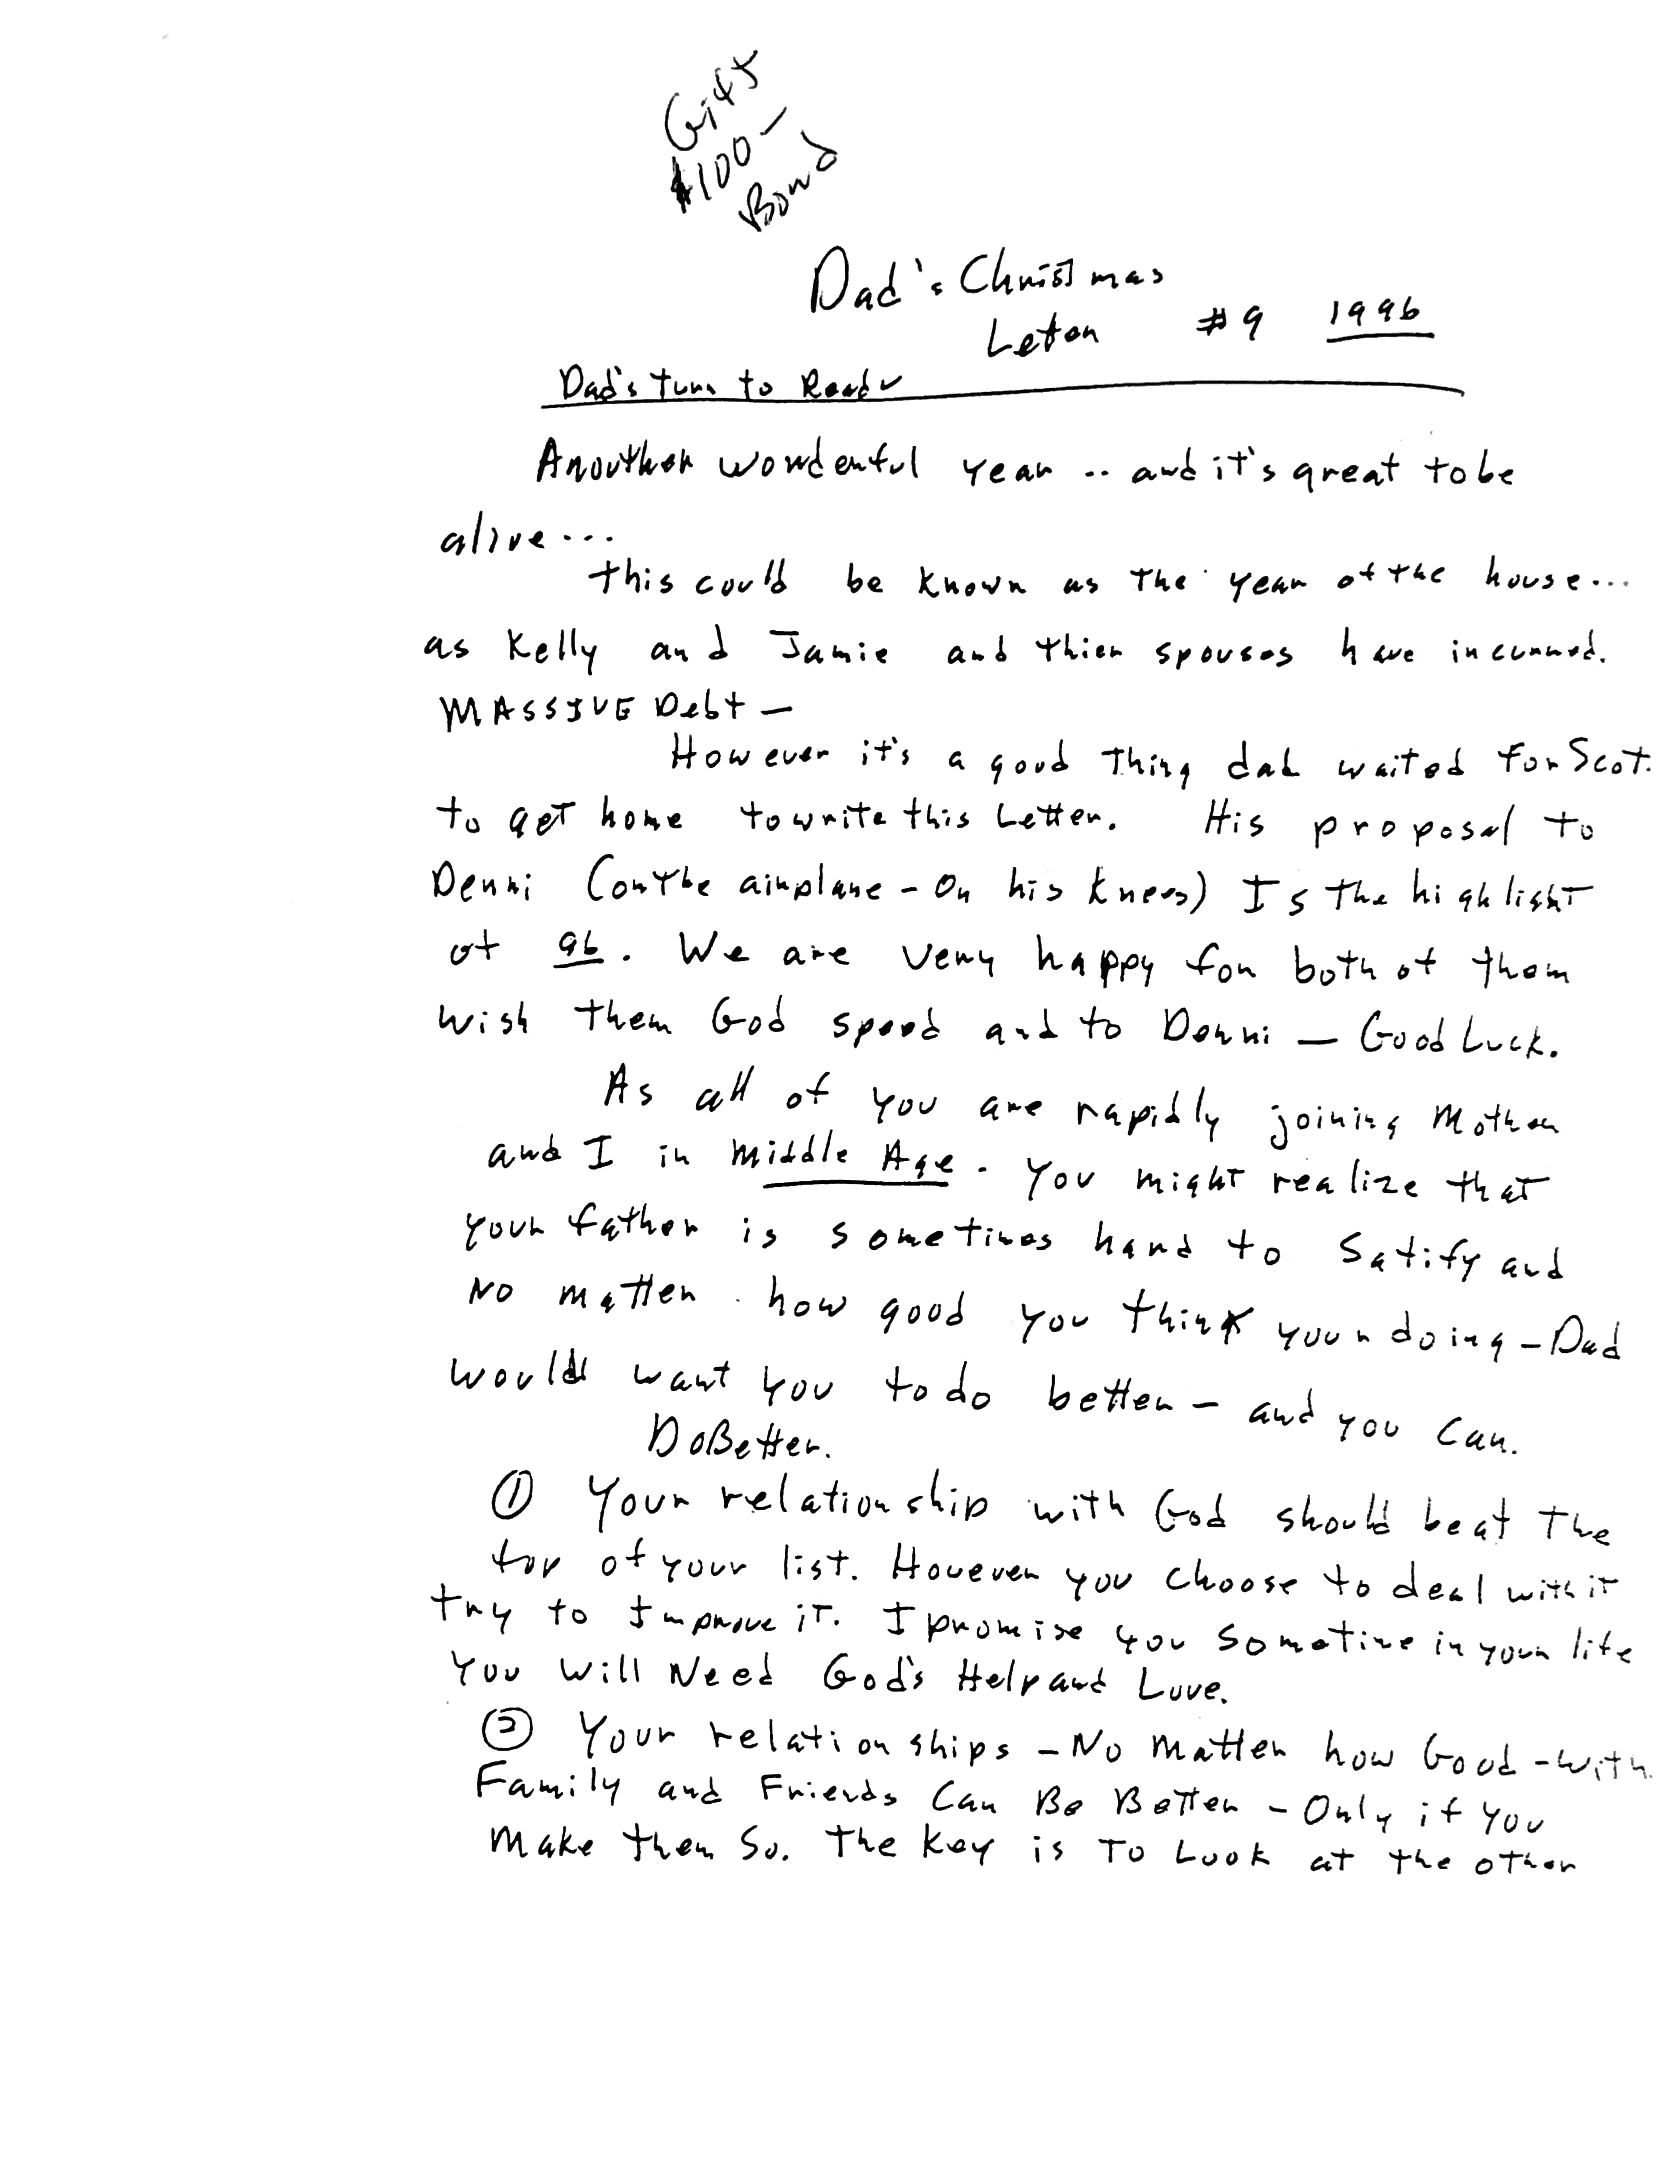 Gift
$100-
Bond
Dad's Christmas
Leter #9 1996
Dad's turn to Read
Anouther wonderful year .. and it's great to be
alive...
this could be known as the year of the house...
as Kelly and Jamie and thier spouses have incurred.
MASSIVE Debt -
However it's a good thing dad waited for Scot.
to get home to write this Letter. His proposal to
Denni (on the airplane - On his knees) Is the highlight
of 96. We are very happy for both of them
wish them God speed and to Denni - Good Luck.
As all of you are rapidly joining Mother
and I in Middle Age. You might realize that
your father is sometimes hard to Satify and
No matter how good you think your doing - Dad
would want you to do better - and you can.
Do Better.
① Your relationship with God should be at the
top of your list. However you choose to deal with it
try to Improve it. I promise you sometime in your life
You Will Need God's Help and Love.
② Your relationships - No Matter how Good - with
Family and Friends Can Be Better - Only if you
Make them So. The Key is To Look at the other